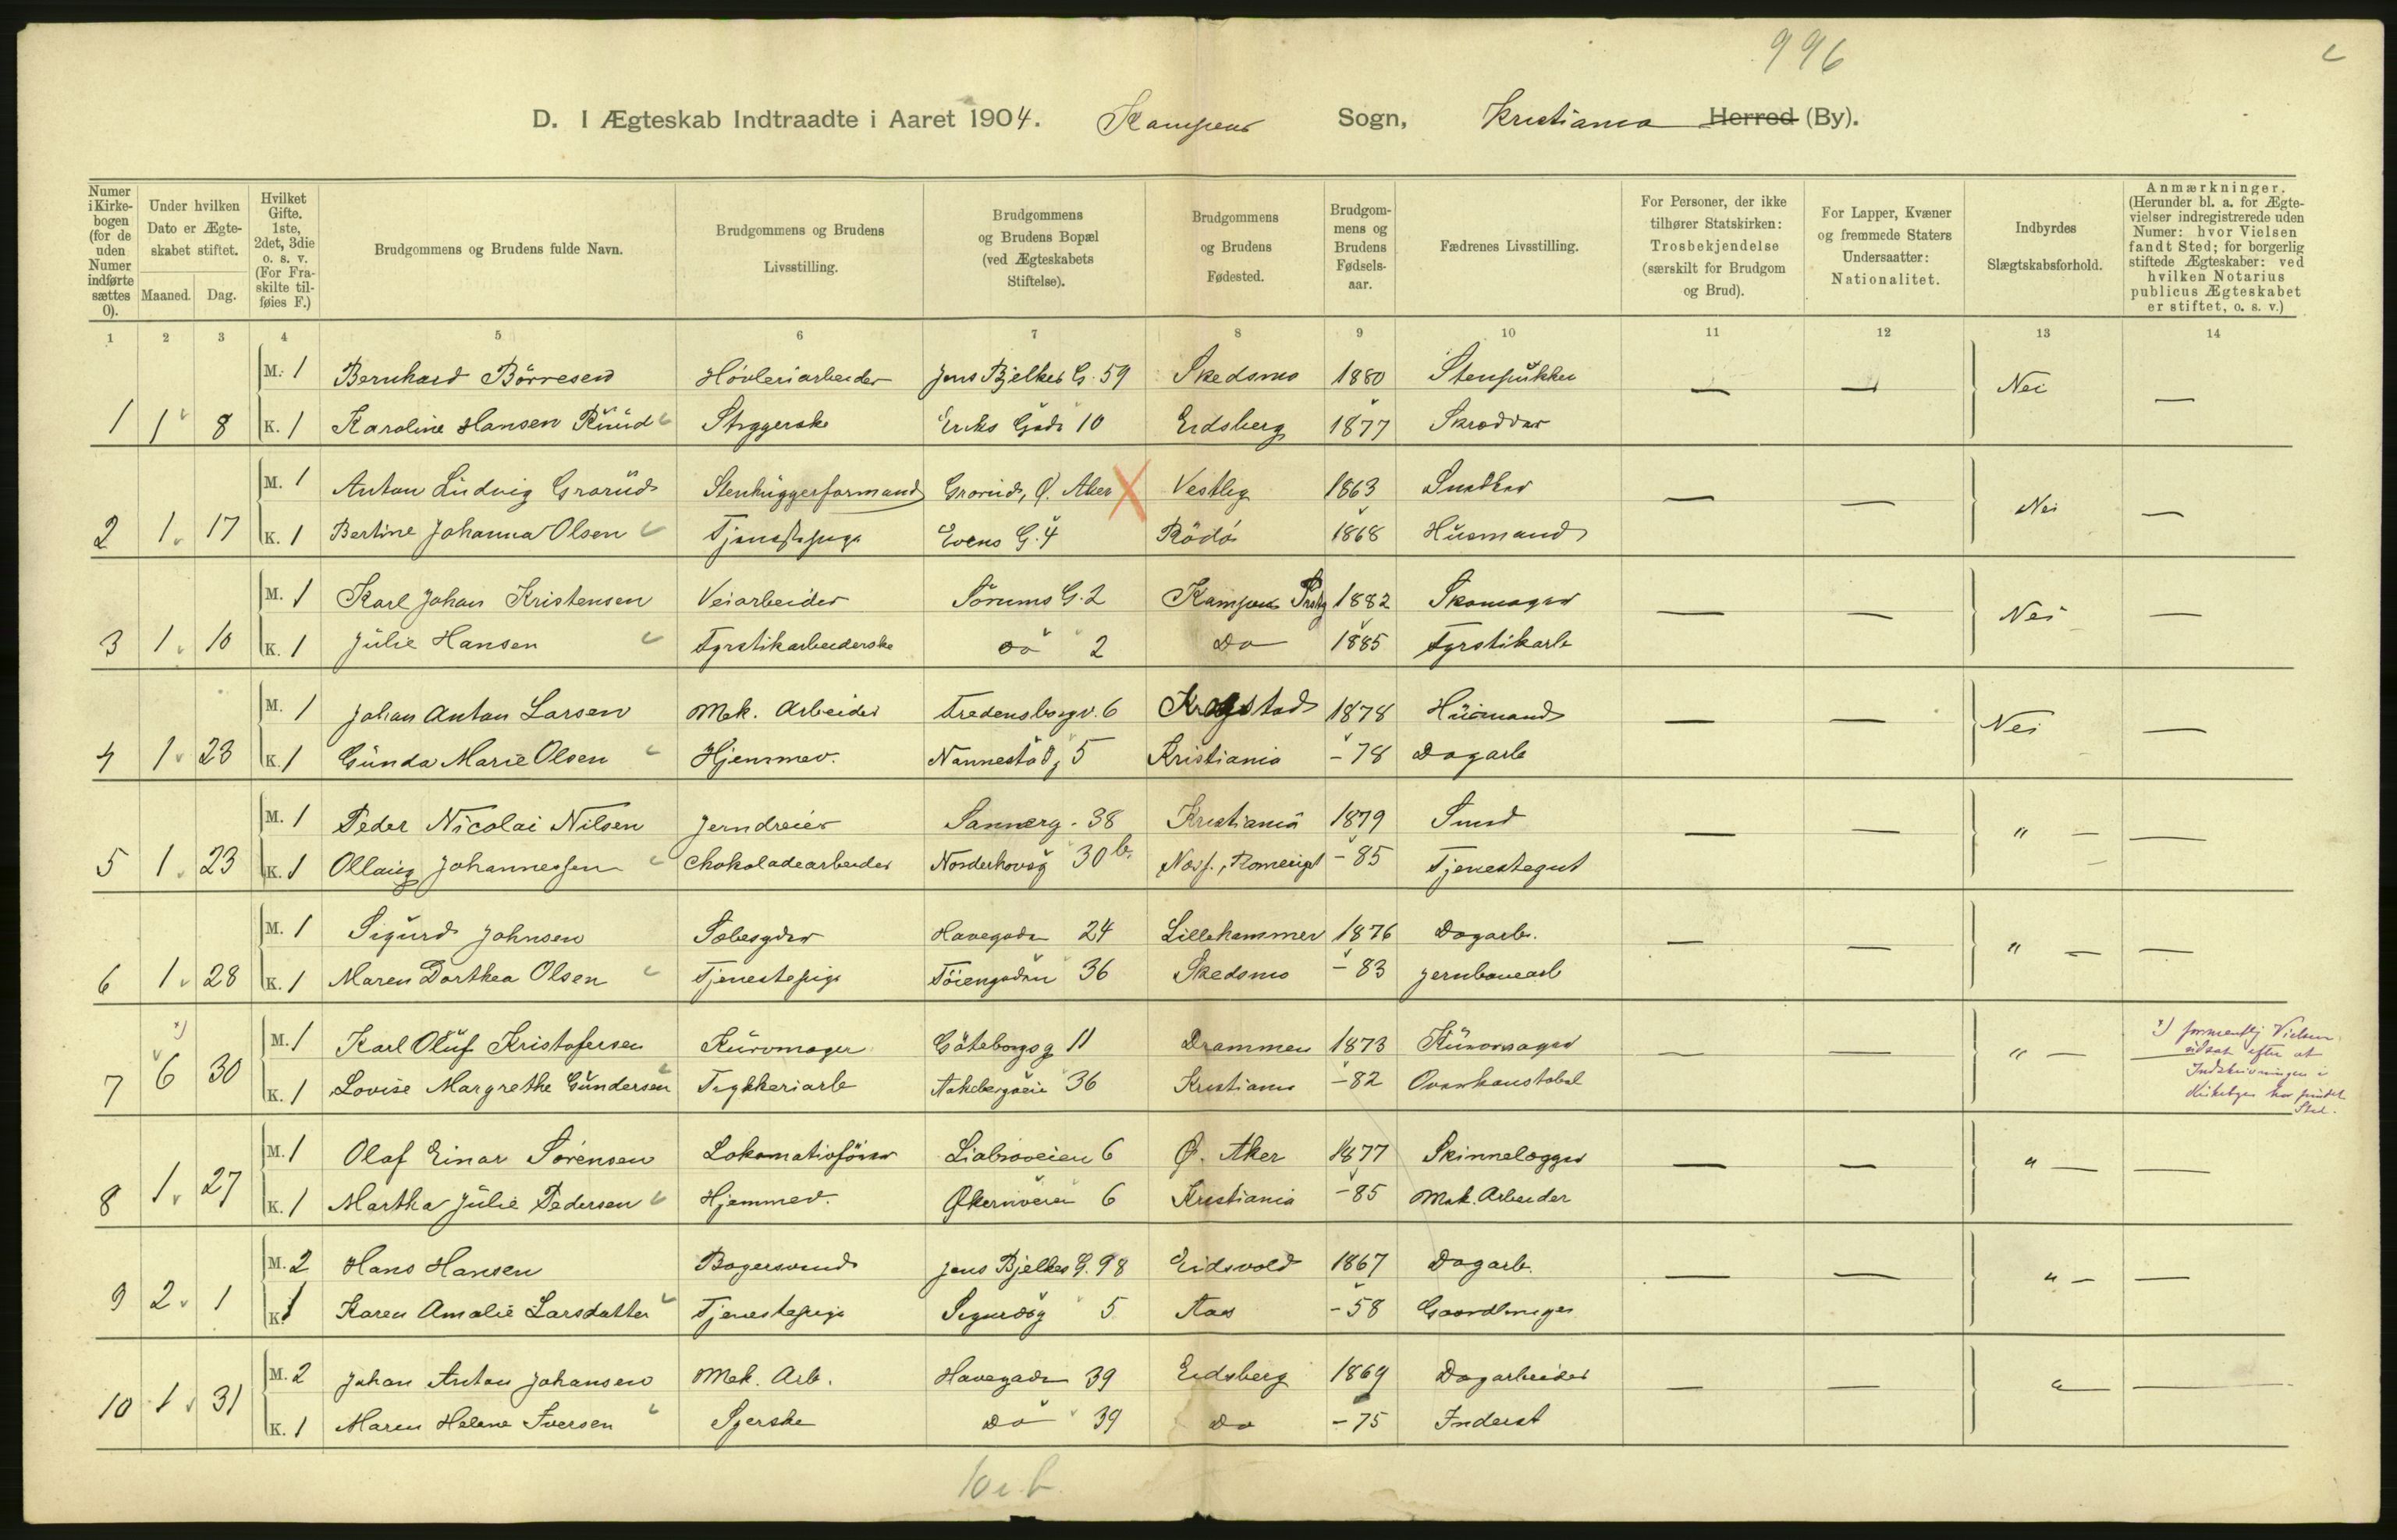 996
D. I Ægteskab Indtraadte i Aaret 1904. Kampens Sogn, Kristiania Herred (By).
Numer i Kirkebogen (for de uden Numer indførte sættes 0).
Under hvilken Dato er Ægteskabet stiftet.
Maaned. Dag.
Hvilket Gifte. 1ste, 2det, 3die o. s. v. (For Fraskilte tilføies F.)
Brudgommens og Brudens fulde Navn.
Brudgommens og Brudens Livsstilling.
Brudgommens og Brudens Bopæl (ved Ægteskabets Stiftelse).
Brudgommens og Brudens Fødested.
Brudgommens og Brudens Fødselsaar.
Fædrenes Livsstilling.
For Personer, der ikke tilhører Statskirken: Trosbekjendelse (særskilt for Brudgom og Brud).
For Lapper, Kvæner og fremmede Staters Undersaatter: Nationalitet.
Indbyrdes Slægtskabsforhold.
Anmærkninger. (Herunder bl. a. for Ægtevielser indregistrerede uden Numer: hvor Vielsen fandt Sted; for borgerlig stiftede Ægteskaber: ved hvilken Notarius publicus Ægteskabet er stiftet, o. s. v.)
1 2 3 4 5 6 7 8 9 10 11 12 13 14
M. 1 Bernhard Börresen Hövleriarbeider Jens Bjelkes G. 59 Skedsmo 1880 Stenpukker — — Nei —
1 1 8 K. 1 Karoline Hansen Ruud Strygerske Eriks Gade 10 Eidsberg 1877 Skrædder
M. 1 Anton Ludvig Grorud Stenhuggerformand Grorud, Ø. Aker Vestby 1863 Snedker — — Nei —
2 1 17 K. 1 Bertine Johanna Olsen Tjenestepige Evens G. 4 Rödö 1868 Husmand
M. 1 Karl Johan Kristensen Veiarbeider Sörums G. 2 Kampens Prstg 1882 Skomager — — Nei —
3 1 10 K. 1 Julie Hansen Fyrstikarbeiderske do 2 Do 1885 Fyrstikarb
M. 1 Johan Anton Larsen Mek. Arbeider Fredensborgv. 6 Krogstad 1878 Husmand — — Nei —
4 1 23 K. 1 Gunda Marie Olsen Hjemmev. Nannestadg 5 Kristiania - 78 Dagarb
M. 1 Peder Nicolai Nilsen Jerndreier Sannerg. 38 Kristiania 1879 Smed — — " — —
5 1 23 K. 1 Ollaug Johannessen Chokoladearbeider Norderhovsg 30 b. Næs, Romerige - 85 Tjenestegut
M. 1 Sigurd Johnsen Sæbesyder Havegaden 24 Lillehammer 1876 Dagarb. — — " — —
6 1 28 K. 1 Maren Dorthea Olsen Tjenestepige Töiengaden 36 Skedsmo - 83 Jernbanearb
M. 1 Karl Oluf Kristofersen Kurvmager Göteborgsg 11 Drammen 1873 Kurvmager — — " —
7 6 30 K. 1 Lovise Margrethe Gundersen Trykkeriarb Aakebergveien 36 Kristiania - 82
x) formentlig Vielsen
sidst efter at
Indskrivningen i
Kirkebogen har fundet
Sted.
M. 1 Olaf Einar Sörensen Lokomotivförer Liabroveien 6 Ø. Aker 1877 Skinnelægger — — " — —
8 1 27 K. 1 Martha Julie Pedersen Hjemmev. Økernveien 6 Kristiania - 85 Mek. Arbeider
M. 2 Hans Hansen Bagersvend Jens Bjelkes G. 98 Eidsvold 1867 Dagarb. — — " — —
9 2 1 K. 1 Karen Amalie Larsdatter Tjenestepige Sigurdsg 5 Aas - 58 Gaardbruger
M. 2 Johan Anton Johansen Mek. Arb. Havegaden 39 Eidsberg 1869 Dagarbeider — — " —
10 1 31 K. 1 Maren Helene Iversen Syerske Do 39 Do - 75 Inderst